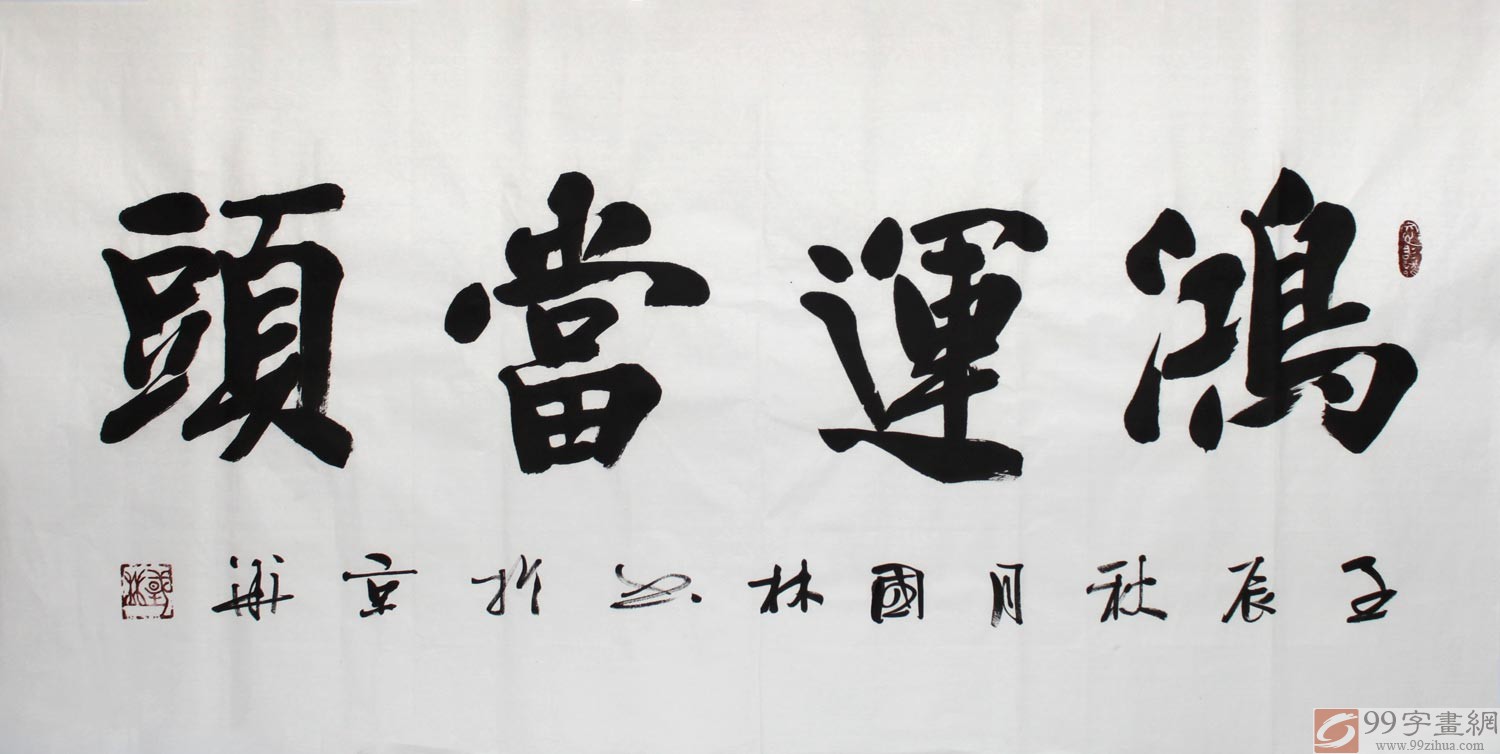 鴻運當頭
壬辰秋月國林書於京華
國林
99字畫網
www.99zihua.com